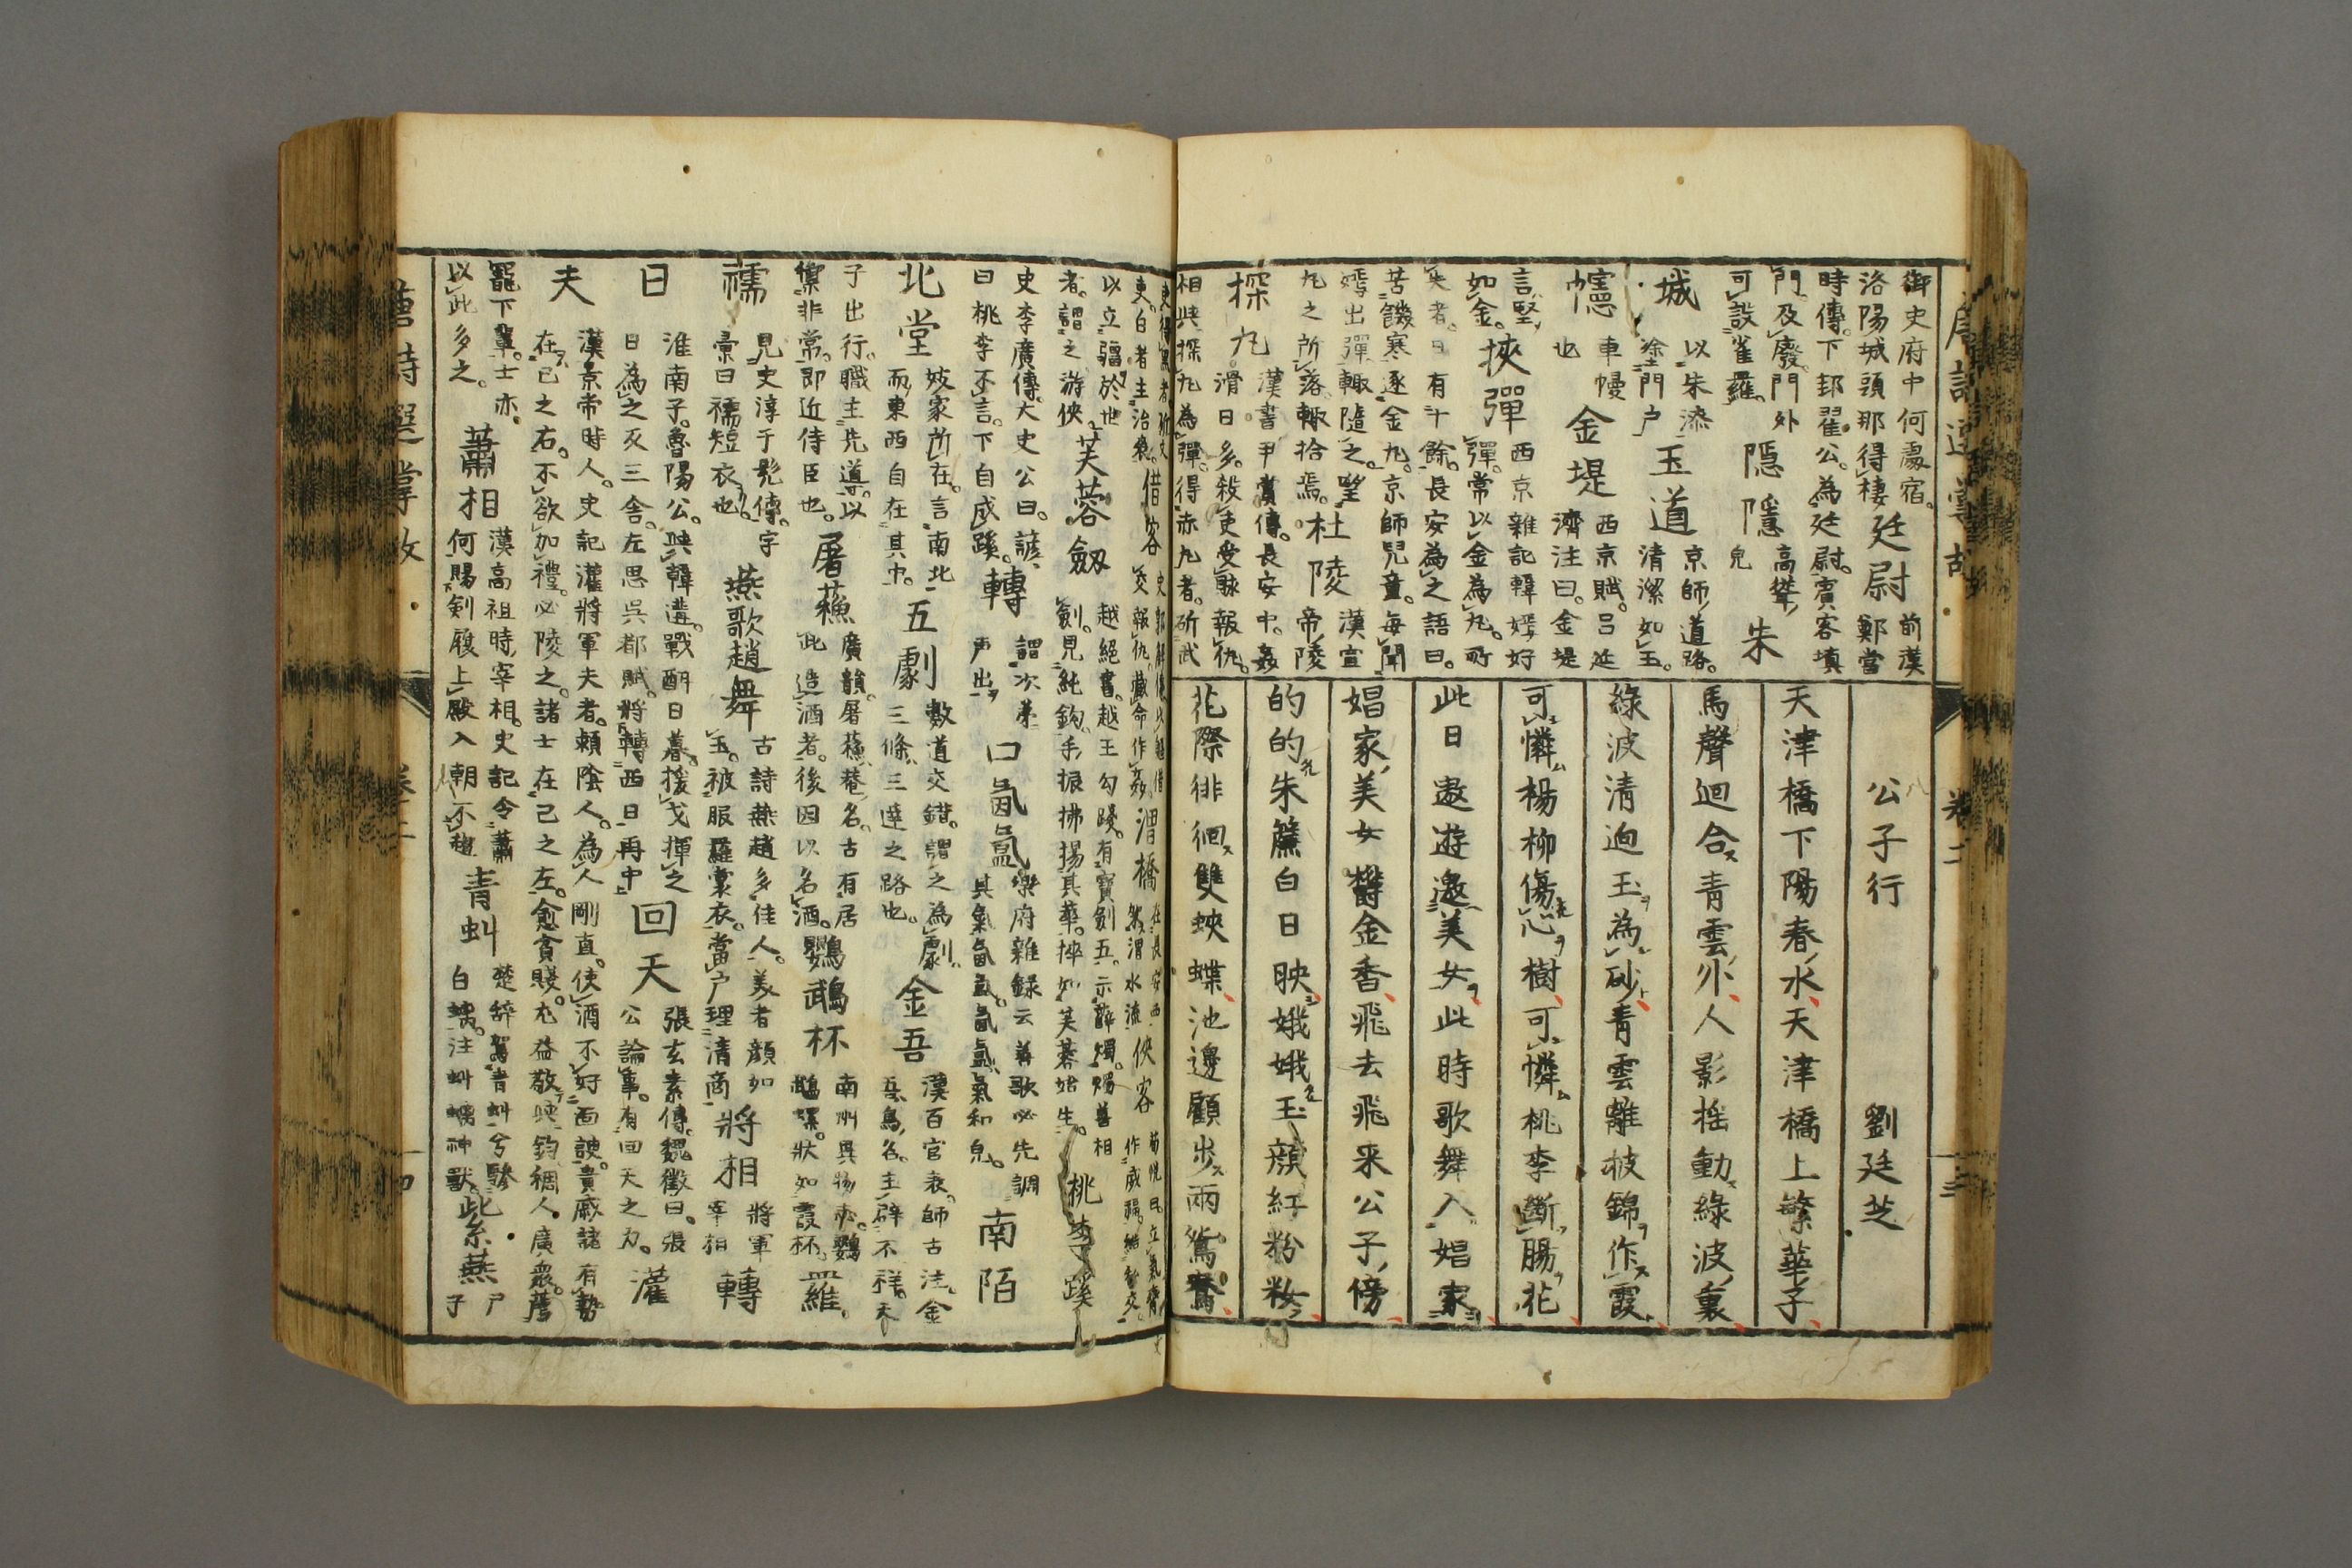 唐詩選掌故 卷二
御史府中何處宿。
洛陽城頭那得棲廷尉前漢鄭當
時傳。下邽翟公為廷尉。賓客填
門。及廢。門外可設雀羅。隱隱高聳皃朱
城以朱漆塗門戶玉道京師道路。清潔如玉。
幰車幔也金堤西京賦。呂延濟注曰。金堤
言堅如金。挾彈西京雜記韓嫣好彈。常以金為丸。所
失者。日有十餘。長安為之語曰。
苦饑寒逐金丸。京師兒童。每聞
嫣出彈輙隨之。望
丸之所落輙拾焉。杜陵漢宣帝陵
探丸漢書尹賞傳。長安中。姦滑日多。殺吏受賕報仇。
相與探丸為彈。得赤丸者。斫武
公子行 劉廷芝
天津橋下陽春水天津橋上繁華子
馬聲迴合青雲外人影搖動綠波裏
綠波清迥玉為砂青雲離披錦作霞
可憐楊柳傷心樹可憐桃李斷腸花
此日遨遊邀美女此時歌舞入娼家
娼家美女鬱金香飛去飛來公子傍
的的朱簾白日映娥娥玉顏紅粉妝
花際徘徊雙蛺蝶池邊顧步兩鴛鴦
吏。得黑者斫文吏。白者主治喪。借客 交報仇藏命作姦渭橋在長安西 渭水流俠客荀悅曰。立氣齊作威福結私交。
以立疆於世者。謂之游俠。芙蓉劔越絕書。越王勾踐。有寶劍五。示薛燭。燭善相劍。見純鉤。手振拂揚其華。捽如芙蓉始生。桃李蹊
史李廣傳。大史公曰。諺曰桃李不言。下自成蹊。轉謂次第声出口氤氳樂府雜録云善歌必先調其氣氤氳。氤氳氣和皃。南陌
北堂妓家所在。言南北而東西自在其中。五劇數道交錯。謂之為劇。三條。三達之路也。金吾漢百官表。師古注。金吾鳥名。主辟不祥。天
子出行。職主先導。以禦非常。即近侍臣也。屠蘇廣韻。屠蘇菴名。古有居此造酒者。後因以名酒。鸚鵡杯南州異物志。鸚鵡螺。狀如霞杯。羅
襦見史淳于髡傳。字彙曰襦短衣也。燕歌趙舞古詩燕趙多佳人。美者顏如玉。被服羅裳衣。當戶理清商將相將軍宰相轉
日淮南子。魯陽公。與韓遘。戰酣日暮。援戈揮之日為之反三舍。左思呉都賦。將轉西日再中回天張玄素傳。魏徵曰。張公論事。有回天之力。灌
夫漢景帝時人。史記灌將軍夫者。頴陰人。為人剛直。使酒不好面諛。貴戚諸有勢在己之右。不欲加禮。必陵之。諸士在己之左。愈貧賤。尤益敬與鈞稠人。廣衆。薦
寵下輩。士亦以此多之。蕭相漢高祖時宰相。史記令蕭何賜剣履上殿入朝不趨青虬楚辞駕青虬兮驂白螭。注虬螭神獣。紫燕尸子
唐詩選掌故 卷二 十四